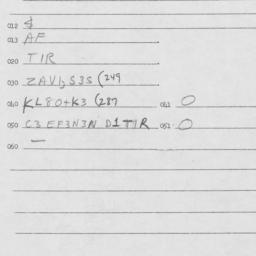 012 $
013 AF
020 TIR
030 ZAV1,S3S (249
040 KL80+K3 (287 041 0
050 C3 EF3N3N D1TIR 051 0
060 —